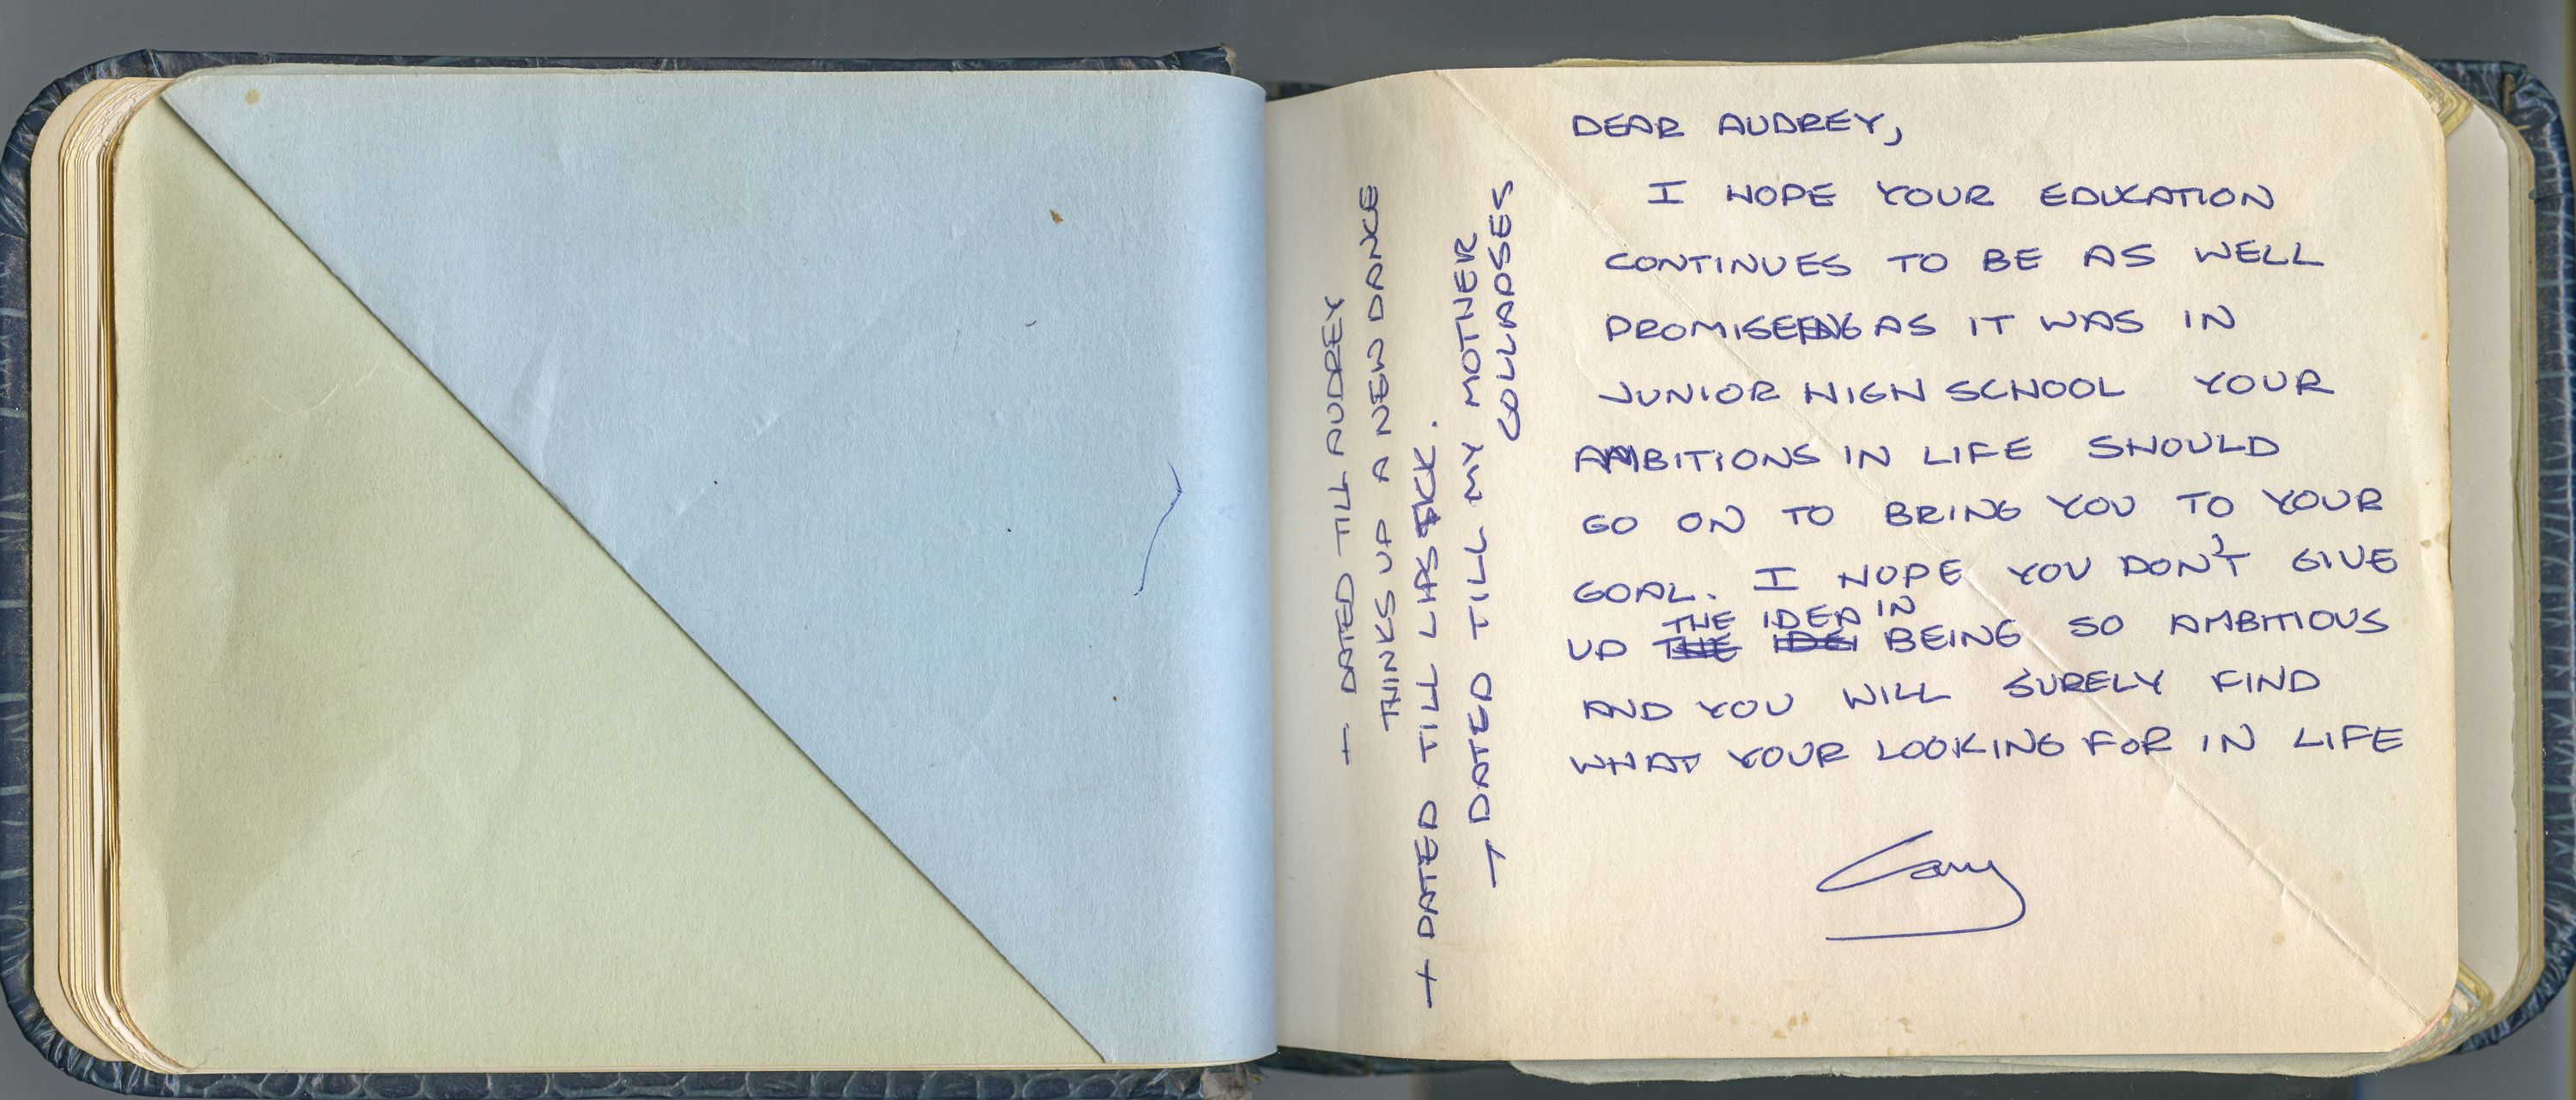 DEAR AUDREY,
I HOPE YOUR EDUCATION
CONTINUES TO BE AS WELL
PROMISEING AS IT WAS IN
JUNIOR HIGH SCHOOL YOUR
AMBITIONS IN LIFE SHOULD
GO ON TO BRING YOU TO YOUR
GOAL. I HOPE YOU DON'T GIVE
THE IDEA IN
UP BEING SO AMBITIOUS
AND YOU WILL SURELY FIND
WHAT YOUR LOOKING FOR IN LIFE
+ DATED TILL AUDREY
THINKS UP A NEW DANCE
+ DATED TILL
+ DATED TILL MY MOTHER
COLLAPSES